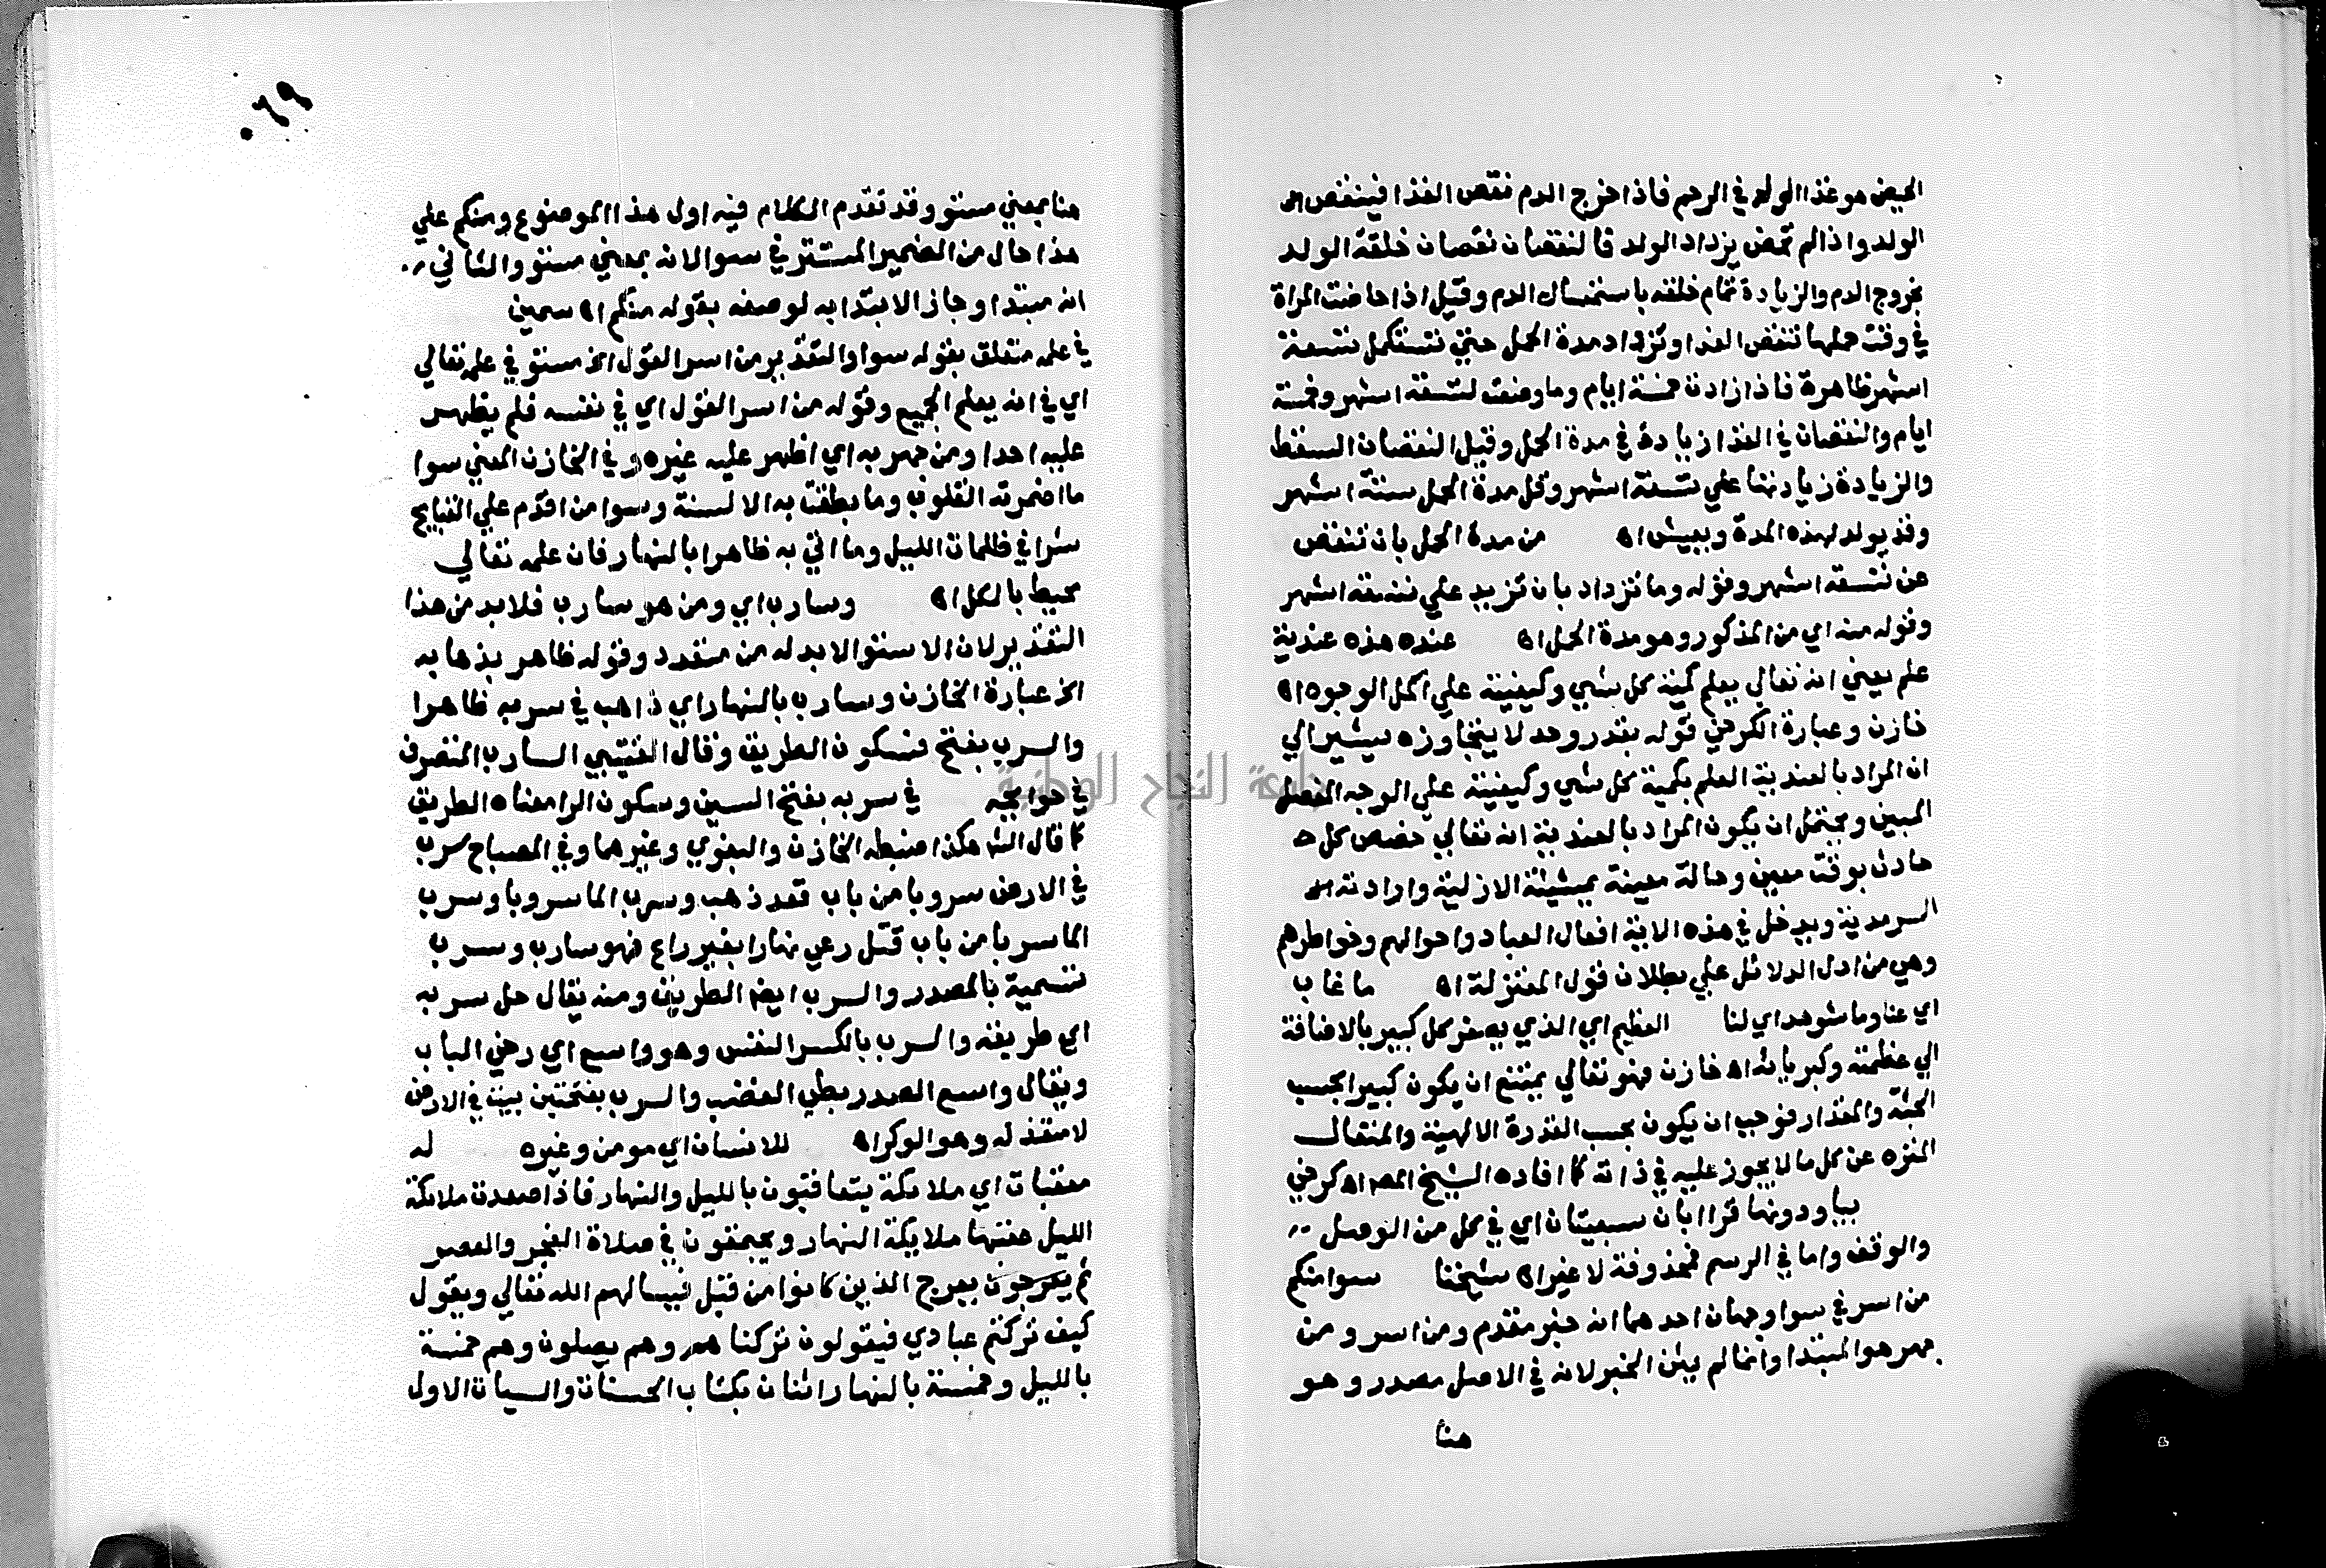 الحيض هو غذا الولد في الرحم فاذا خرج الدم نقص الغذا فينقص
الولد واذا لم تحض يزداد الولد فالنقصان نقصان خلقة الولد
بخروج الدم والزيادة تمام خلقه باستمساك الدم وقيل اذا حاضت المراة
في وقت حملها تنقص الغذا وتزداد مدة الحمل حتي تستكمل تسعة
اشهر ظاهرة فاذا زادت خمسة ايام وما وضعت لتسعة اشهر وخمسة
ايام والنقصان في الغذا زيادة في مدة الحمل وقيل النقصان السقط
والزيادة زيادتها علي تسعة اشهر وقل مدة الحمل ستة اشهر
وقد يولد لهذه المدة ويعيش اه من مدة الحمل بان تنقص
عن تسعة اشهر وقوله وما تزداد بان تزيد علي تسعة اشهر
وقوله منه اي من المذكور وهو مدة الحمل اه عنده هذه عندية
علم يعني انه تعالي يعلم كمية كل شي وكيفيته علي اكمل الوجوه اه
خازن وعبارة الكرخي قوله بقدر وحد لا يتجاوزه يشير الي
ان المراد بالعندية العلم بكمية كل شي وكيفيته علي الوجه المفصل
المبين ويحتمل ان يكون المراد بالعندية انه تعالي خصص كل
حادث بوقت معين وحالة معينة بمشيئة الازلية وارادته
السرمدية ويدخل في هذه الاية افعال العباد واحوالهم وخواطرهم
وهي من ادل الدلائل علي بطلان قول المعتزلة اه ما غاب
اي عنا وما شوهد اي لنا العظيم اي الذي يصغر كل كبير بالاضافة
الي عظمته وكبريائه اه خازن فهو تعالي يمتنع ان يكون كبيرا بحسب
الجثة والمقدار فوجب ان يكون بحسب القدرة الالهية والمتعال
المنزه عن كل ما لا يجوز عليه في ذاته كما افاده الشيخ المص اه كرخي
بيا ودونها قراابان سبعيتان اي في كل من الوصل
والوقف واما في الرسم فمحذوفة لا غير اه شيخنا سوا منكم
من اسر في سوا وجهان احدهما انه خبر مقدم ومن اسر ومن
جهر هو المبتدا وانما لم يثن الخبر لانه في الاصل مصدر وهو
هنا
٠٦٩
هنا بمعني مستو وقد تقدم الكلام فيه اول هذا الموضوع ومنكم علي
هذا حال من الضمير المستتر في سوا لانه بمعني مستو والثاني
انه مبتدا وجاز الابتدا به لوصفه بقوله منكم اه سمين
في علمه متعلق بقوله سوا والتقدير من اسر القول الخ مستو في علمه تعالي
اي في انه يعلم الجميع وقوله من اسر القول اي في نفسه فلم يظهر
عليه احدا ومن جهر به اي اظهر عليه غيره وفي الخازن المعني سوا
ما اضمرته القلوب وما نطقت به الالسنة وسوا من اقدم علي القبايح
سرا في ظلمات الليل وما اتي به ظاهرا بالنهار فان علمه تعالي
محيط بالكل اه وسارب اي ومن هو سارب فلا بد من هذا
التقدير لان الاستوا لا بد له من متعدد وقوله ظاهر بذهابه
الخ عبارة الخازن وسارب بالنهار اي ذاهب في سربه ظاهرا
والسرب بفتح فسكون الطريق وقال القتيبي السارب المتصرف
في حوايجه في سربه بفتح السين وسكون الرا معناه الطريق
كما قال الش هكذا ضبطه الخازن والبغوي وغيرهما وفي المصباح سرب
في الارض سروبا من باب قعد ذهب وسرب الما سروبا وسرب
الما سربا من باب قتل رعي نهارا بغير راع فهو سارب وسرب
تسمية بالمصدر والسرب ايضا الطريق ومنه يقال خل سربه
اي طريقه والسرب بالكسر النفس وهو واسع اي رخي الباب
ويقال واسع الصدر بطي الغضب والسرب بفتحتين بيت في الارض
لا منفذ له وهو الوكر اه للانسان اي مومن وغيره له
معقبات اي ملايكة يتعاقبون بالليل والنهار فاذا صعدت ملايكة
الليل عقبتها ملايكة النهار ويجتمعون في صلاة الفجر والعصر
ثم يعرجون يعرج الذين كانوا من قبل فيسالهم الله تعالي ويقول
كيف تركتم عبادي فيقولون تركناهم وهم يصلون وهم خمسة
بالليل وخمسة بالنهار اثنان بكتاب الحسنات والسيات الاول
جامعة النجاح الوطنية